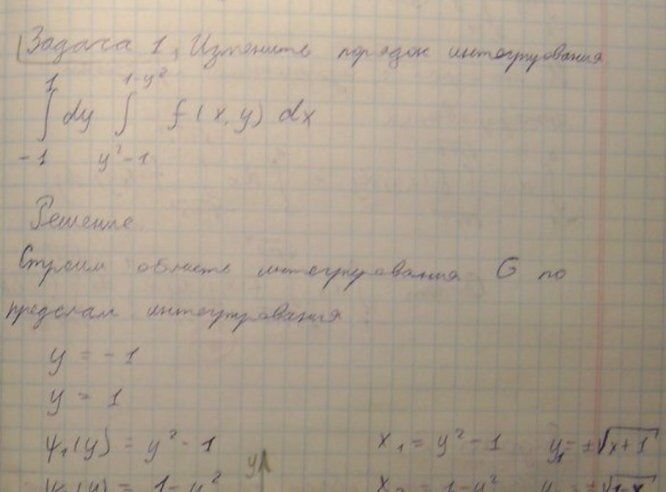 Задача 1. Измените порядок интегрирования
1 1-y²
∫ dy ∫ f(x, y) dx
-1 y²-1
Решение
Строим область интегрирования G по
пределам интегрирования.
y = -1
y = 1
ψ₁(y) = y² - 1 x₁ = y² - 1 y₁ = ±√(x+1)
y
ψ₂(y) = 1 - y² x₂ = 1 - y² y₂ = ±√(1-x)